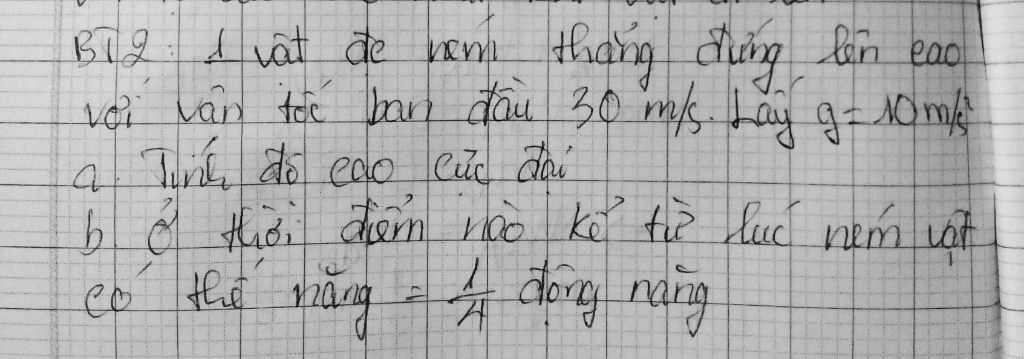 BT2: 1 vật đc ném thẳng đứng lên cao
với vận tốc ban đầu 30 m/s. Lấy g = 10 m/s²
a. Tính độ cao cực đại
b ở thời điểm nào kể từ lúc ném vật
có thế năng = 1/4 động năng